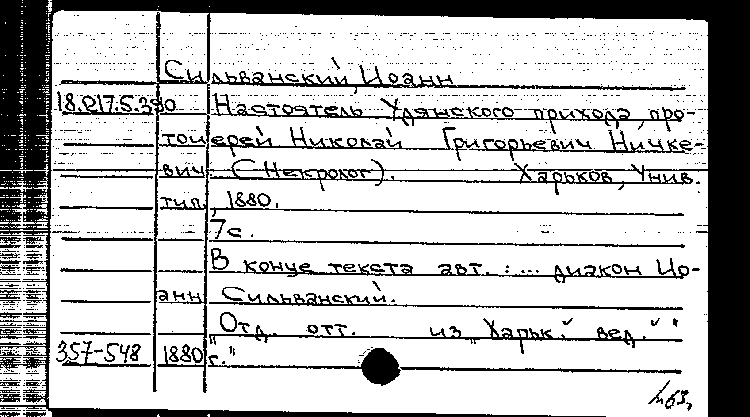 Сильванский, Иоанн
18.217.5.390 Настоятель Удянского прихода, про-
тоиерей Николай Григорьевич Ничке-
вич. (Некролог). Харьков, Унив.
тип., 1880.
7 с.
В конце текста авт.: ... диакон Ио-
анн Сильванский.
"Отд. отт. из „Харьк. вед."
357-548 1880 г."